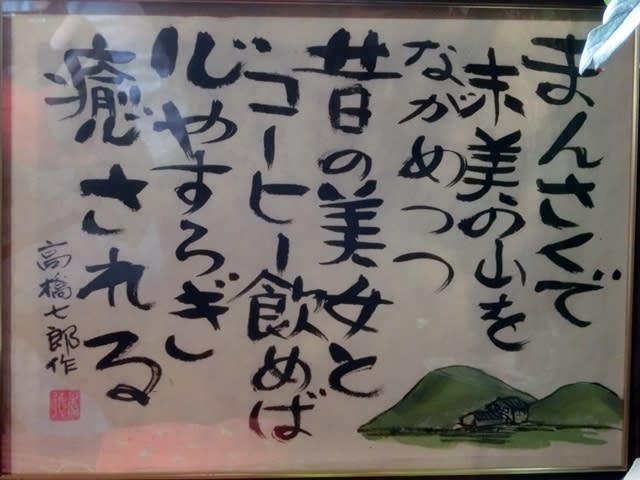 まんさくで
末美の山を
ながめつつ
昔の美女と
コーヒー飲めば
心やすらぎ
癒される
高橋七郎作